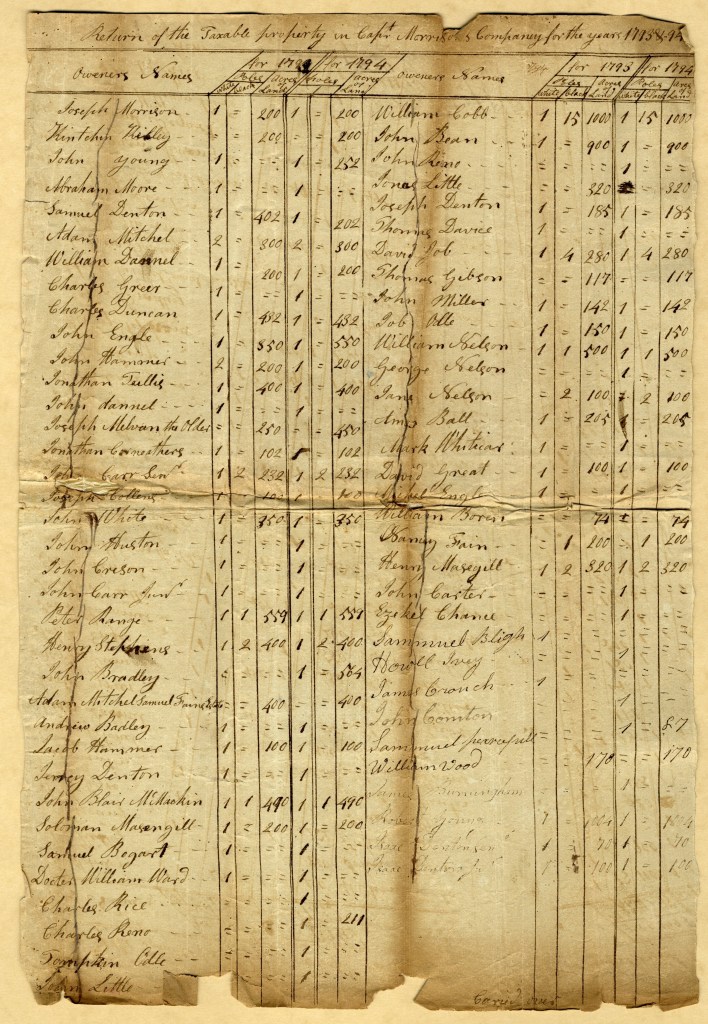 Return of the Taxable property in Capt Morrisons Company for the years 1793 & 94
Owners Names
for 1793
for 1794
Poles
Acres
Poles
Acres
white
black
Land
Land
Joseph Morrison 1 = 200 1 = 200
Kintchin Killey = = 200 = = 200
John young 1 = = 1 = 252
Abraham Moore 1 = = 1 = =
Samuel Denton 1 = 402 1 = 202
Adam Mitchel 2 = 300 2 = 300
William Dannel 1 = 200 1 = 200
Charles Greer = = = 1 = =
Charles Duncan 1 = 432 1 = 432
John Engle 1 = 350 1 = 550
John Hammer 2 = 200 1 = 200
Jonathan Tullis 1 = 400 1 = 400
John dannel 1 = = 1 = =
Joseph Melvan the Older = = 250 = = 450
Jonathan 1 = 102 1 = 102
John Carr Senr 1 2 232 1 2 232
Joseph Collens
John White 1 = 350 1 = 350
John Huston 1 = =
John Creson 1 = =
John Carr Junr 1 = =
Peter Range 1 1 559 1 1 559
Henry Stephens 1 2 400 1 2 400
John Bradley = 564
Adam Mitchel Samuel Fains = = 400 = = 400
Andrew Badley 1 = = 1 = =
Jacob Hammer 1 = 100 1 = 100
Jerrey Denton 1 = = 1 = =
John Blair McMackin 1 1 490 1 1 490
Soloman Masengill 1 = 200 1 = 200
Samuel Bogart 1 = = 1 = =
Docter William Ward 1 = = 1 = =
Charles Rice 1 = 211
Charles Reno 1 = =
Tompkin Odle 1 = =
John Little 1 = =
Owners Names
for 1793
for 1794
Poles
Acres
Poles
Acres
white
black
Land
white
black
Land
William Cobb 1 15 1000 1 15 1000
John Bean 1 = 900 1 = 900
John Reno = = = 1 = =
Jonas Little = = 320 = 320
Joseph Denton 1 = 185 1 = 185
Thomas Davice = = = 1 = =
David Job 1 4 280 1 4 280
Thomas Gibson = = 117 = = 117
John Miller 1 = 142 1 = 142
Job Odle 1 = 150 1 = 150
William Nelson 1 1 500 1 1 500
George Nelson = = = 1 = =
Jane Nelson = 2 100 = 2 100
Amos Ball 1 = 205 1 = 205
Mark Whiticar 1 = = = =
David Great = 100 1 = 100
Mikel Engle 1 = = 1 = =
William Boren = = 74 = 74
Ramey Fain = 1 200 = 1 200
Henry Masegill 1 2 320 1 2 320
John Carter 1 = =
Ezekel Chance 1
Sammuel Bligh 1
Howell Ivey 1
James Crouch 1
John Comton 1 = 87
Sammuel
William Wood = = 170 = = 170
James 1 = =
young
70
100 1 = 100
Carid over